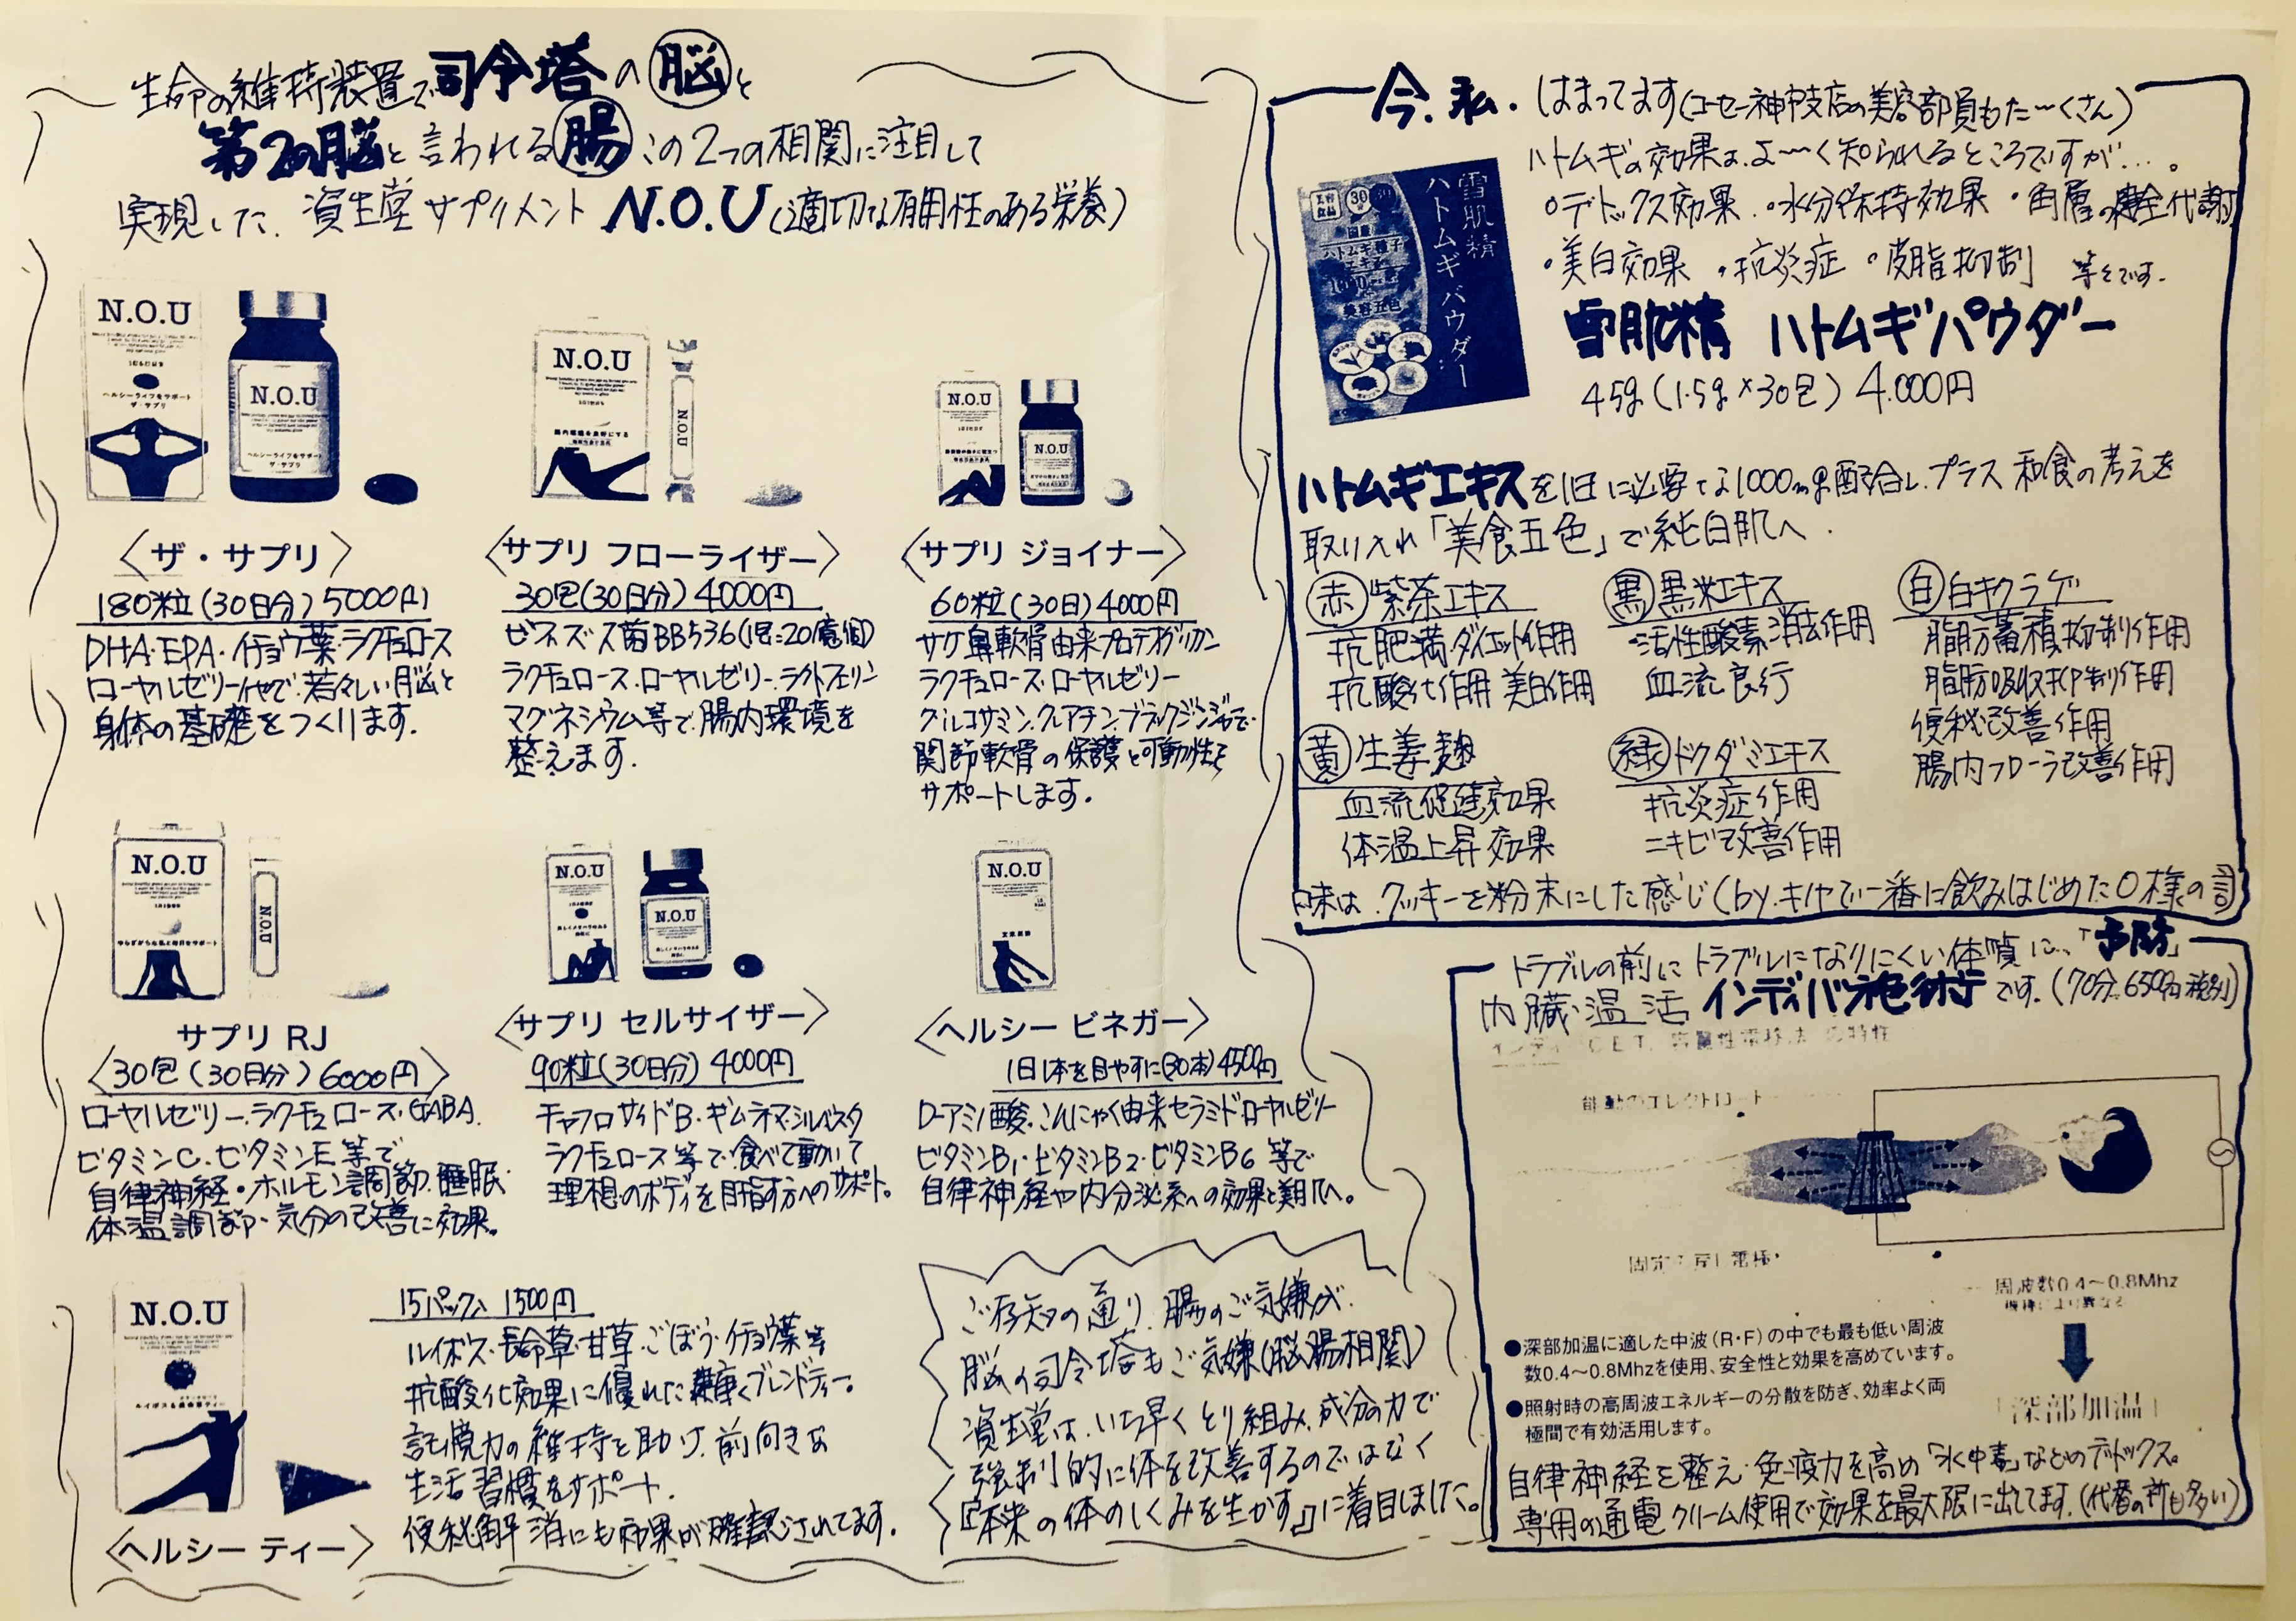 生命の維持装置で司令塔の脳と
第2の脳と言われる腸この2つの相関に注目して
実現した、資生堂サプリメント N.O.U(適切な有用性のある栄養)
N.O.U
ヘルシーライフをサポート
ザ・サプリ
N.O.U
ヘルシーライフをサポート
ザ・サプリ
〈ザ・サプリ〉
180粒(30日分)5000円
DHA・EPA・イチョウ葉・ラクチュロース
ローヤルゼリー他で、若々しい脳と
身体の基礎をつくります。
N.O.U
腸内環境を良好にする
N.O.U
〈サプリ フローライザー〉
30包(30日分)4000円
ビフィズス菌BB536(1包=20億個)
ラクチュロース・ローヤルゼリー・ラクトフェリン
マグネシウム等で、腸内環境を
整えます。
N.O.U
N.O.U
〈サプリ ジョイナー〉
60粒(30日)4000円
サケ鼻軟骨由来プロテオグリカン
ラクチュロース・ローヤルゼリー
グルコサミン、クレアチン、ブラックジンジャーで・
関節軟骨の保護と可動性を
サポートします。
N.O.U
ゆらぎがちな私に毎日をサポート
N.O.U
サプリ RJ
〈30包(30日分)6000円〉
ローヤルゼリー、ラクチュロース・GABA.
ビタミンC、ビタミンE等で
自律神経・ホルモン調節、睡眠・
体温調節・気分の改善に効果。
N.O.U
N.O.U
〈サプリ セルサイザー〉
90粒(30日分)4000円
チャフロサイドB・ギムネマ・シルベスタ
ラクチュロース等で、食べて動いて
理想のボディを目指す方へのサポート。
N.O.U
〈ヘルシー ビネガー〉
1日1本を目やすに(30本)4500円
D-アミノ酸、こんにゃく由来セラミド・ローヤルゼリー
ビタミンB1・ビタミンB2・ビタミンB6 等で
自律神経や内分泌系への効果と美肌へ。
N.O.U
ルイボス&長命草ティー
〈ヘルシー ティー〉
15パック入 1500円
ルイボス・長命草・甘草・ごぼう・イチョウ葉等
抗酸化効果に優れたブレンドティー。
記憶力の維持を助け、前向きな
生活習慣をサポート.
便秘解消にも効果が確認されてます。
ご存知の通り、腸のご気嫌が、
脳の司令塔もご気嫌(脳腸相関)
資生堂は、いち早くとり組み、成分の力で
強制的に体を改善するのではなく
『本来の体のしくみを生かす』に着目しました。
今、私、はまってます(コーセー神戸支店の美容部員もた〜くさん)
ハトムギの効果は、よ〜く知られるところですが…。
・デトックス効果・水分保持効果・角層の健全代謝
・美白効果・抗炎症・皮脂抑制 等々です.
雪肌精
ハトムギパウダー
国産
ハトムギ種子
エキス
美容五色
雪肌精 ハトムギパウダー
45g(1.5g×30包)4.000円
ハトムギエキスを1日に必要な1000mg配合し、プラス和食の考えを
取り入れ「美食五色」で純白肌へ.
赤 紫茶エキス
抗肥満・ダイエット作用
抗酸化作用 美白作用
黒 黒米エキス
活性酸素消去作用
血流良行
白 白キクラゲ
脂肪蓄積抑制作用
脂肪吸収抑制作用
便秘改善作用
腸内フローラ改善作用
黄 生姜麹
血流促進効果
体温上昇効果
緑 ドクダミエキス
抗炎症作用
ニキビ改善作用
味は、クッキーを粉末にした感じ(by.キヤで一番に飲みはじめたO様の言
トラブルの前にトラブルになりにくい体質に、「予防」
内臓・温活 インディバ施術です。(70分.6500円税別)
周波数0.4〜0.8Mhz
機種により異なる
「深部加温」
●深部加温に適した中波(R・F)の中でも最も低い周波
数0.4〜0.8Mhzを使用、安全性と効果を高めています。
●照射時の高周波エネルギーの分散を防ぎ、効率よく両
極間で有効活用します。
自律神経を整え・免疫力を高め「水中毒」などのデトックス。
専用の通電クリーム使用で効果を最大限に出してます。(代替の所も多い)